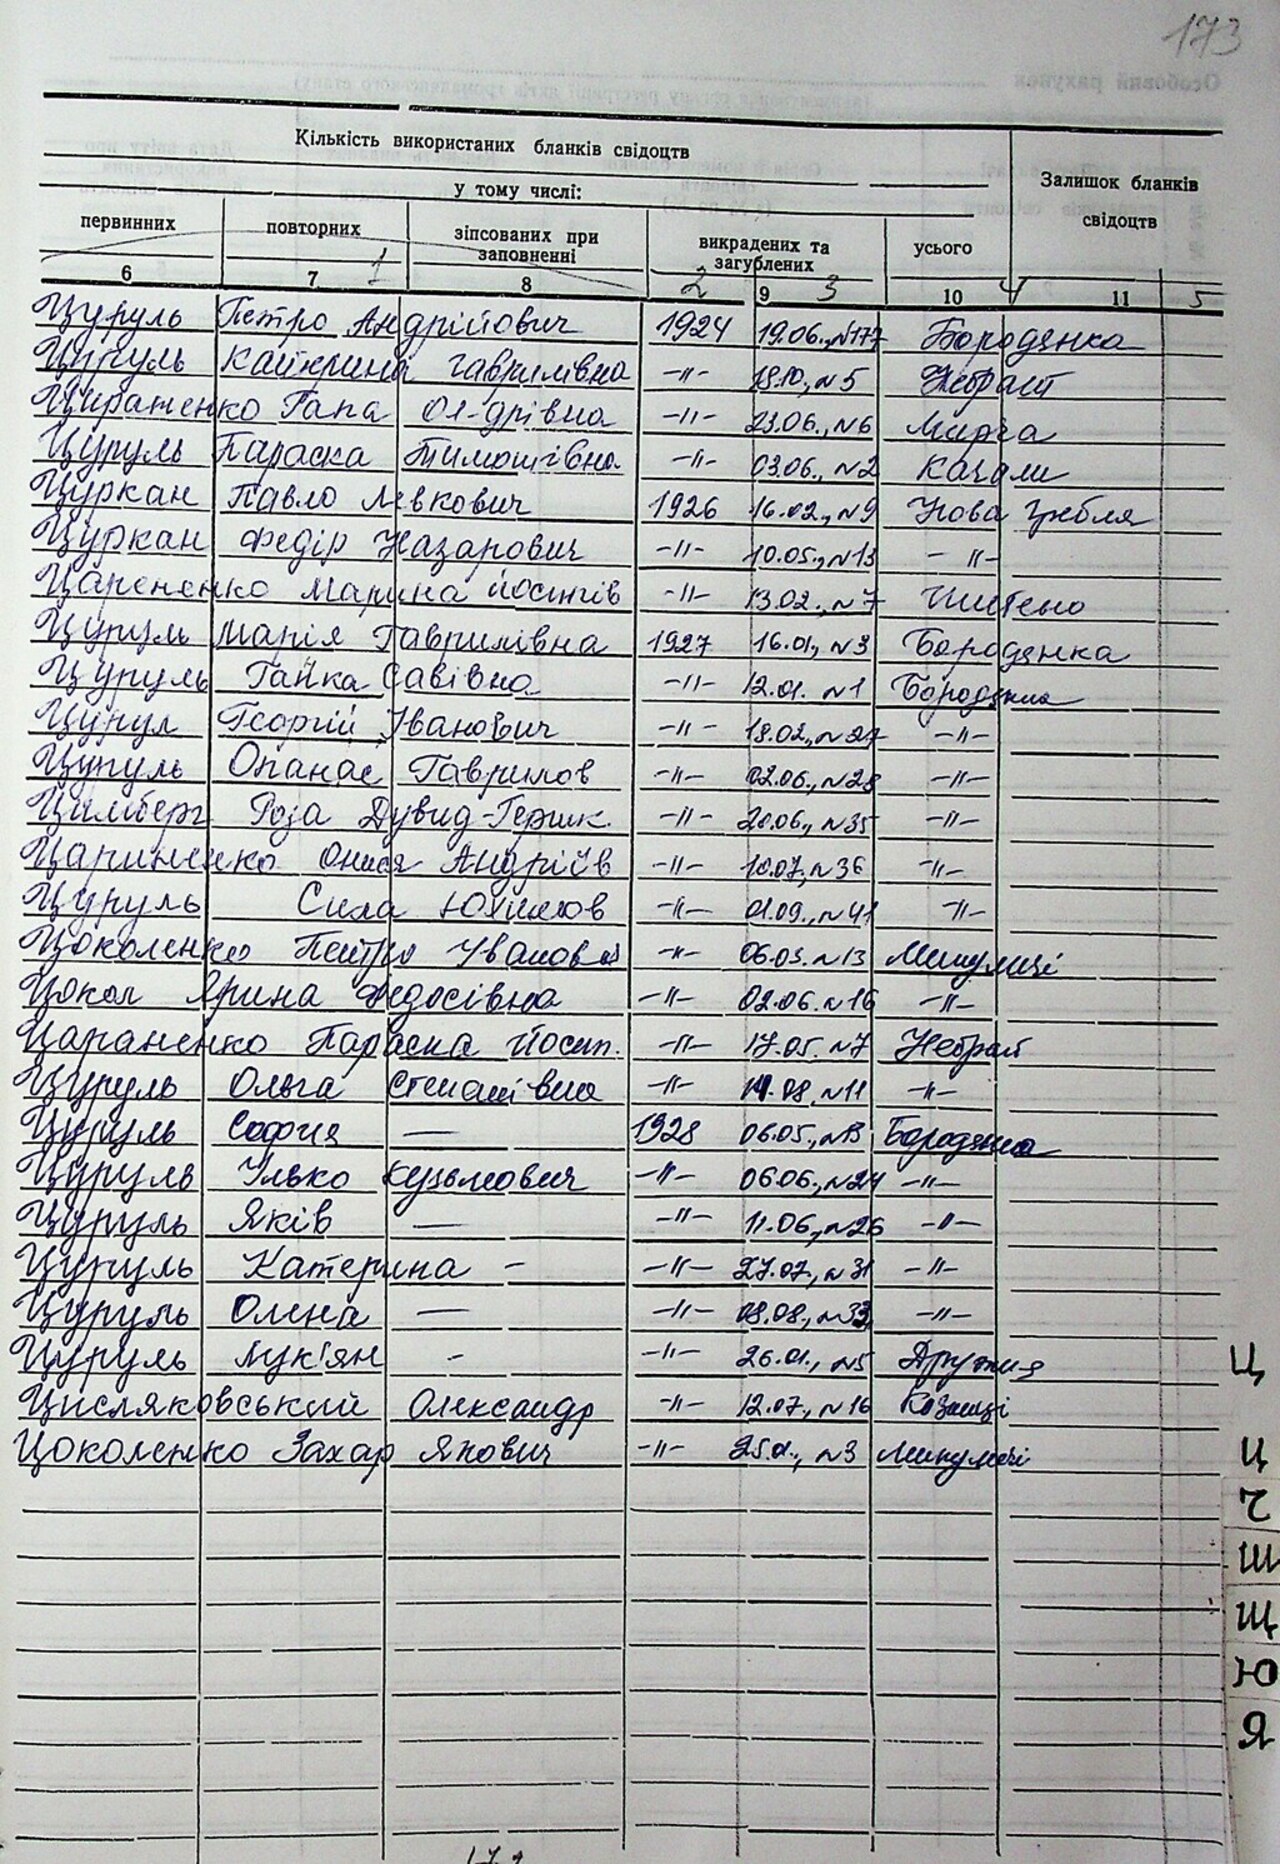 173
Кількість використаних бланків свідоцтв
Залишок бланків свідоцтв
у тому числі:
первинних повторних зіпсованих при заповненні викрадених та загублених усього
6 7 8 9 10 11
1 2 3 4 5
Цуруль Петро Андрійович 1924 19.06., №177 Бородянка
Цуруль Катерина Гаврилівна -"- 18.10., №5 Небрат
Гапа Ол-дрівна -"- 23.06., №6 Мирча
Цуруль Параска Тимошівна -"- 03.06., №2 Качали
Цуркан Павло Левкович 1926 16.02., №9 Нова Гребля
Цуркан Федір Назарович -"- 10.05., №13 -"-
Царененко Марина Йосипів -"- 13.02., №7
Цуруль Марія Гаврилівна 1927 16.01., №3 Бородянка
Цуруль Ганка Савівна -"- 12.01. №1 Бородянка
Цурул Георгій Іванович -"- 18.02., №27 -"-
Цуруль Опанас Гаврилов -"- 02.06., №28 -"-
Цимберг Роза Дувид-Гершк. -"- 20.06., №35 -"-
Цариненко Онися Андріїв -"- 10.07., №36 -"-
Цуруль Сила Юхимов -"- 01.09., №41 -"-
Цоколенко Петро Іванов -"- 06.05. №13 Микуличі
Цокол Ярина Федосівна -"- 02.06. №16 -"-
Цараненко Параска Йосип. -"- 17.05. №7 Небрат
Цуруль Ольга Степанівна -"- 14.08. №11 -"-
Цуруль София — 1928 06.05., №13 Бородянка
Цуруль Улько Кузьмович -"- 06.06., №24 -"-
Цуруль Яків — -"- 11.06., №26 -"-
Цуруль Катерина - -"- 27.07., №31 -"-
Цуруль Олена — -"- 08.08., №33 -"-
Цуруль Лук'ян - -"- 26.01., №5 Дружня
Цисляковський Олександр -"- 12.07., №16 Козинці
Цоколенко Захар Якович -"- 25.01., №3 Микуличі
Ц
Ц
Ч
Ш
Щ
Ю
Я